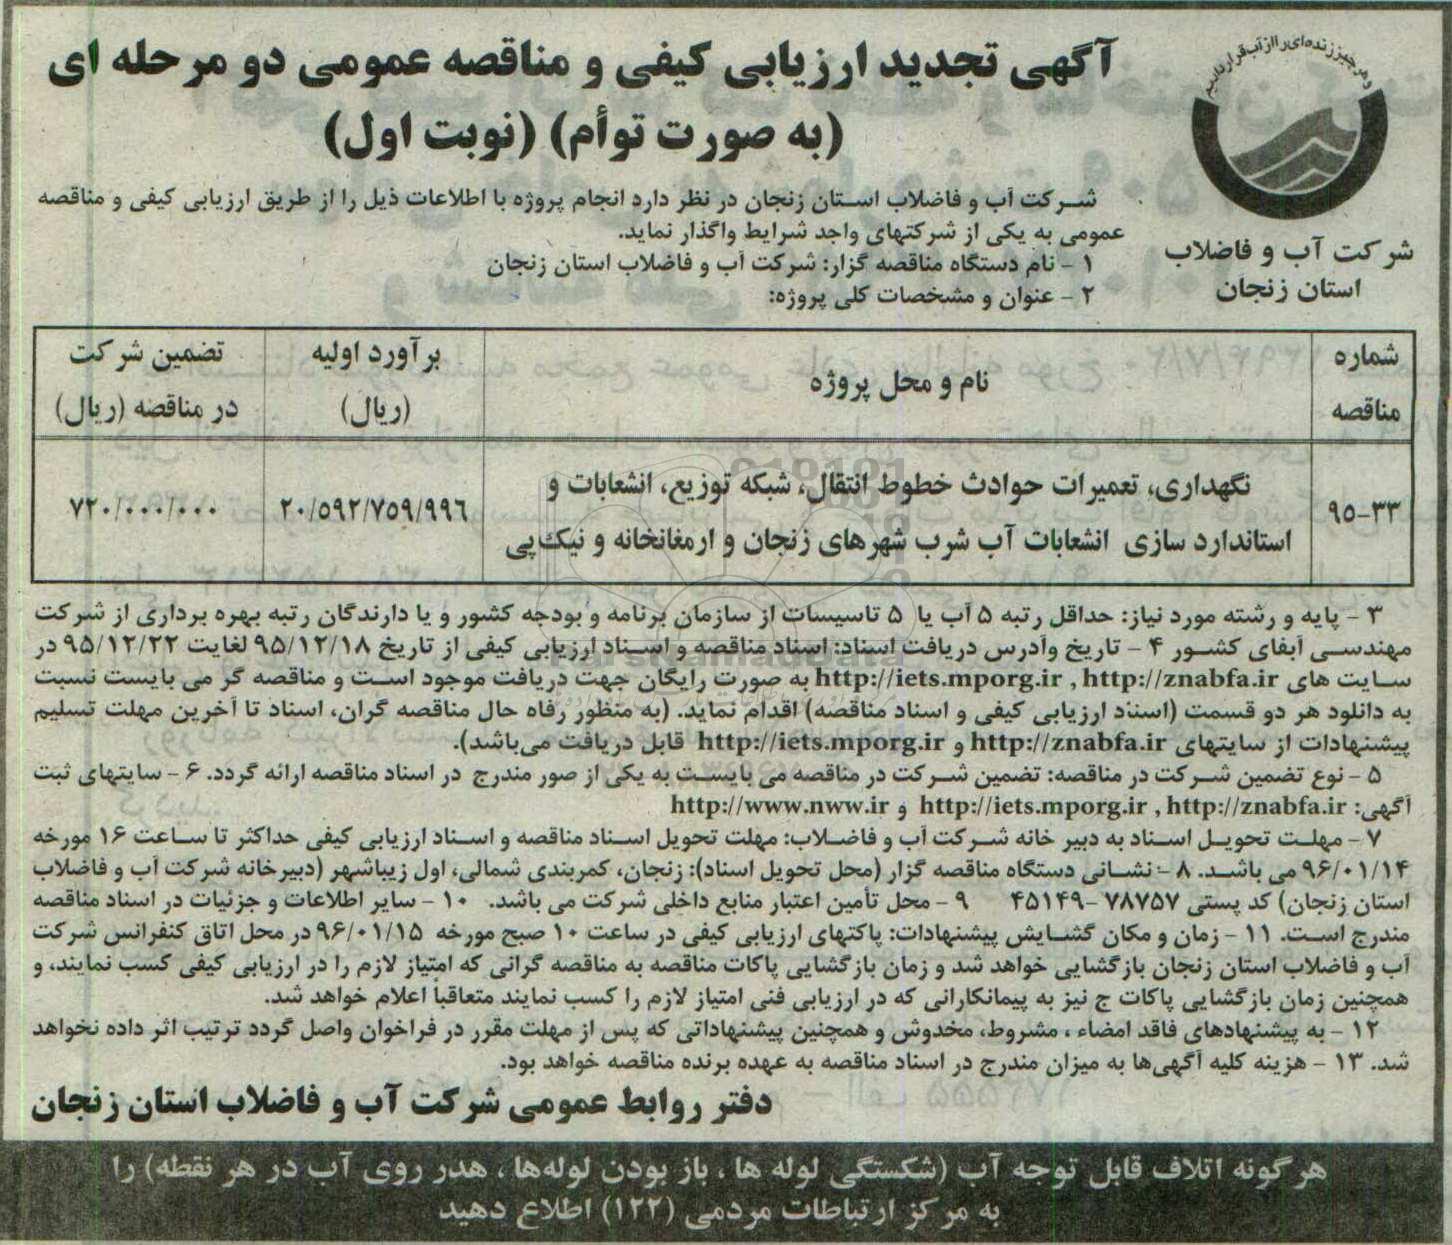 وهر چیز زنده‌ای را از آب قرار دادیم
شرکت آب و فاضلاب
استان زنجان
آگهی تجدید ارزیابی کیفی و مناقصه عمومی دو مرحله ای
(به صورت توأم) (نوبت اول)
شرکت آب و فاضلاب استان زنجان در نظر دارد انجام پروژه با اطلاعات ذیل را از طریق ارزیابی کیفی و مناقصه
عمومی به یکی از شرکتهای واجد شرایط واگذار نماید.
۱ - نام دستگاه مناقصه گزار: شرکت آب و فاضلاب استان زنجان
۲ - عنوان و مشخصات کلی پروژه:
شماره مناقصه
نام و محل پروژه
برآورد اولیه (ریال)
تضمین شرکت در مناقصه (ریال)
۹۵-۳۳
نگهداری، تعمیرات حوادث خطوط انتقال، شبکه توزیع، انشعابات و
استاندارد سازی انشعابات آب شرب شهرهای زنجان و ارمغانخانه و نیک‌پی
۲۰/۵۹۲/۷۵۹/۹۹۶
۷۲۰/۰۰۰/۰۰۰
۳ - پایه و رشته مورد نیاز: حداقل رتبه ۵ آب یا ۵ تاسیسات از سازمان برنامه و بودجه کشور و یا دارندگان رتبه بهره برداری از شرکت
مهندسی آبفای کشور ۴ - تاریخ وآدرس دریافت اسناد: اسناد مناقصه و اسناد ارزیابی کیفی از تاریخ ۹۵/۱۲/۱۸ لغایت ۹۵/۱۲/۲۲ در
سایت های http://iets.mporg.ir , http://znabfa.ir به صورت رایگان جهت دریافت موجود است و مناقصه گر می بایست نسبت
به دانلود هر دو قسمت (اسناد ارزیابی کیفی و اسناد مناقصه) اقدام نماید. (به منظور رفاه حال مناقصه گران، اسناد تا آخرین مهلت تسلیم
پیشنهادات از سایتهای http://znabfa.ir و http://iets.mporg.ir قابل دریافت می‌باشد).
۵ - نوع تضمین شرکت در مناقصه: تضمین شرکت در مناقصه می بایست به یکی از صور مندرج در اسناد مناقصه ارائه گردد. ۶ - سایتهای ثبت
آگهی: http://iets.mporg.ir , http://znabfa.ir و http://www.nww.ir
۷ - مهلت تحویل اسناد به دبیر خانه شرکت آب و فاضلاب: مهلت تحویل اسناد مناقصه و اسناد ارزیابی کیفی حداکثر تا ساعت ۱۶ مورخه
۹۶/۰۱/۱۴ می باشد. ۸ - نشانی دستگاه مناقصه گزار (محل تحویل اسناد): زنجان، کمربندی شمالی، اول زیباشهر (دبیرخانه شرکت آب و فاضلاب
استان زنجان) کد پستی ۷۸۷۵۷-۴۵۱۴۹ ۹ - محل تأمین اعتبار منابع داخلی شرکت می باشد. ۱۰ - سایر اطلاعات و جزئیات در اسناد مناقصه
مندرج است. ۱۱ - زمان و مکان گشایش پیشنهادات: پاکتهای ارزیابی کیفی در ساعت ۱۰ صبح مورخه ۹۶/۰۱/۱۵ در محل اتاق کنفرانس شرکت
آب و فاضلاب استان زنجان بازگشایی خواهد شد و زمان بازگشایی پاکات مناقصه به مناقصه گرانی که امتیاز لازم را در ارزیابی کیفی کسب نمایند، و
همچنین زمان بازگشایی پاکات ج نیز به پیمانکارانی که در ارزیابی فنی امتیاز لازم را کسب نمایند متعاقباً اعلام خواهد شد.
۱۲ - به پیشنهادهای فاقد امضاء ، مشروط، مخدوش و همچنین پیشنهاداتی که پس از مهلت مقرر در فراخوان واصل گردد ترتیب اثر داده نخواهد
شد. ۱۳ - هزینه کلیه آگهی‌ها به میزان مندرج در اسناد مناقصه به عهده برنده مناقصه خواهد بود.
دفتر روابط عمومی شرکت آب و فاضلاب استان زنجان
هرگونه اتلاف قابل توجه آب (شکستگی لوله ها ، باز بودن لوله‌ها ، هدر روی آب در هر نقطه) را
به مرکز ارتباطات مردمی (۱۲۲) اطلاع دهید